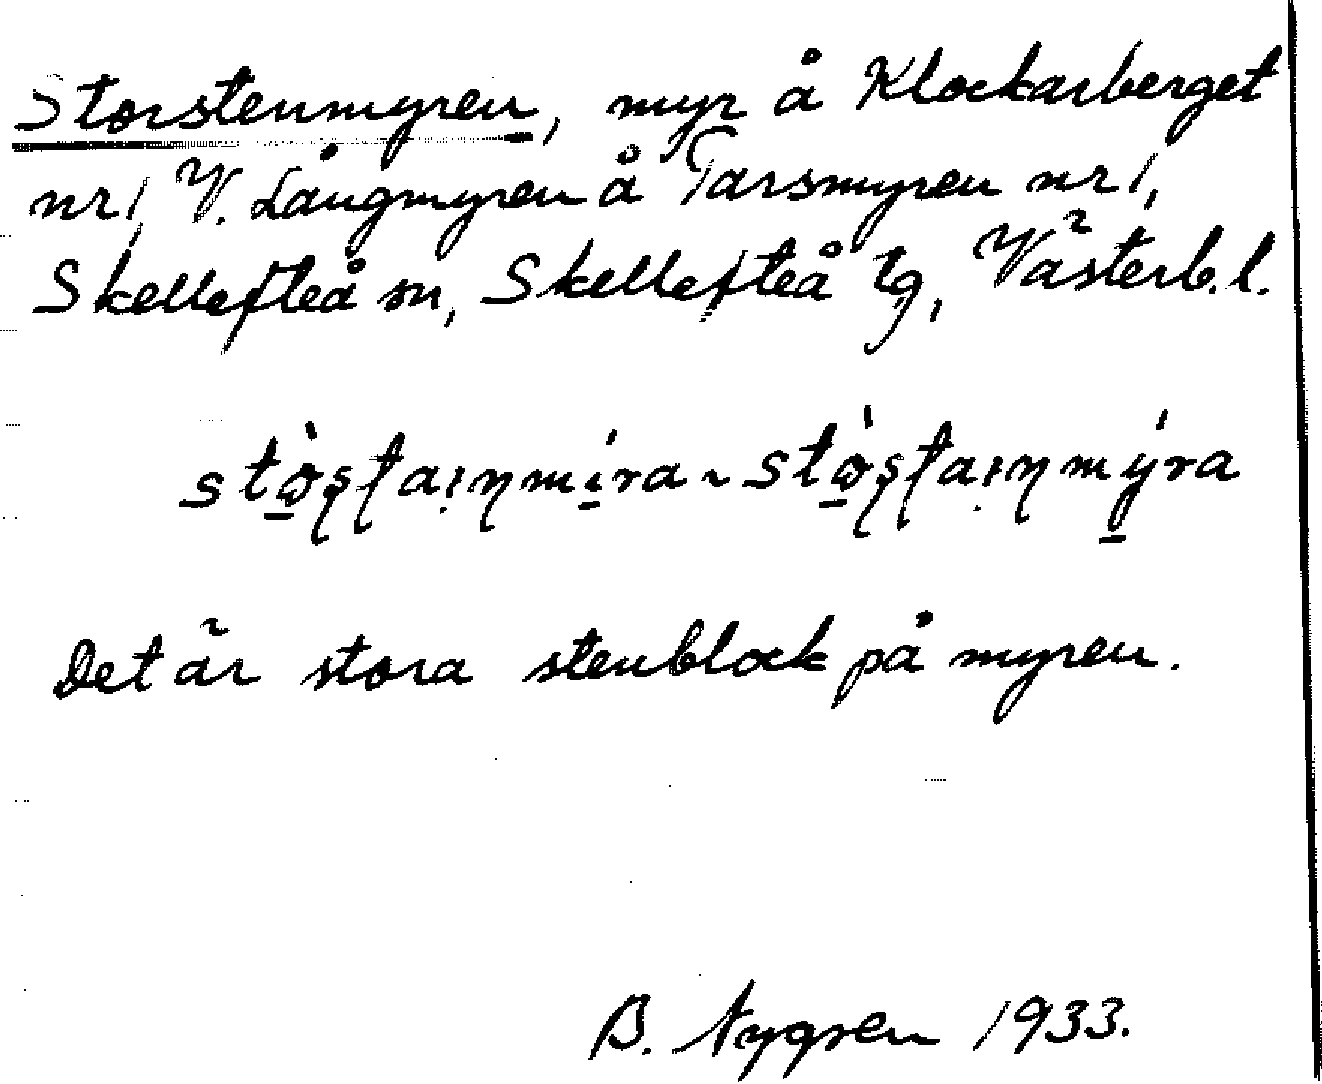 Storstenmyren, myr å Klockarberget
nr 1, V. Långmyren å Tarsmyren nr 1,
Skellefteå sn, Skellefteå tg, Västerb. l.
Det är stora stenblock på myren.
B. Nygren 1933.